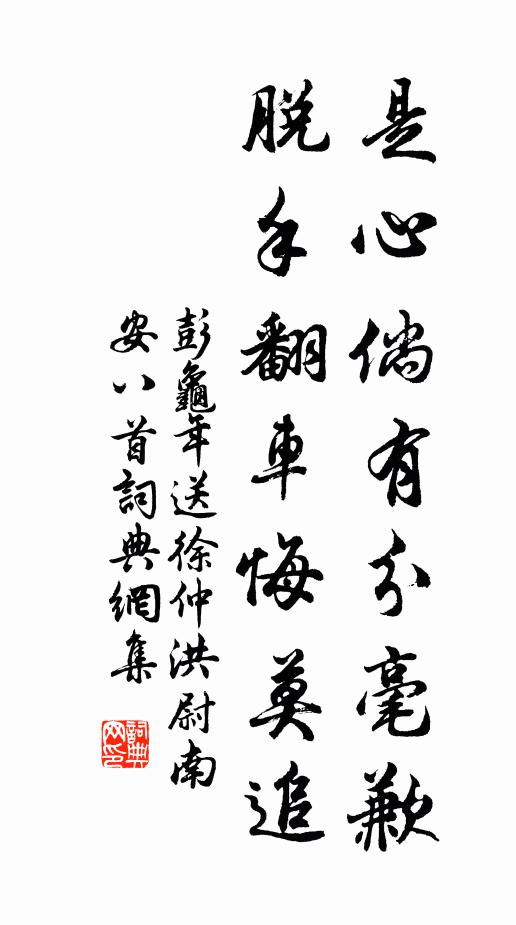 是心倘有分毫歉
脫手翻車悔莫追
彭龜年送徐仲洪尉南
安八首詞典網集
詞典
网印